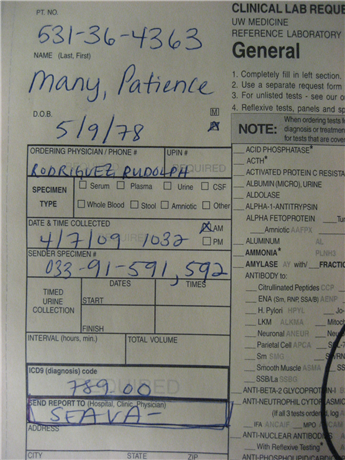 PT. NO.
531-36-4363
NAME (Last, First)
Many, Patience
D.O.B.
M
5/9/78
ORDERING PHYSICIAN / PHONE # UPIN #
RODRIGUEZ RUDOLPH REQUIRED
SPECIMEN TYPE
Serum Plasma Urine CSF
Whole Blood Stool Amniotic Other
DATE & TIME COLLECTED
4/7/09 1032 AM PM
SENDER SPECIMEN #
033-91-591, 592
TIMED URINE COLLECTION
DATES TIMES
START
FINISH
INTERVAL (hours, min.) TOTAL VOLUME
ICD9 (diagnosis) code
789.00 REQUIRED
SEND REPORT TO (Hospital, Clinic, Physician)
SEAVA-
ADDRESS
CITY STATE ZIP
CLINICAL LAB REQUE
UW MEDICINE
REFERENCE LABORATORY
General
1. Completely fill in left section.
2. Use a separate request form
3. For unlisted tests - see our o
4. Reflexive tests, panels and sp
NOTE: When ordering tests f
diagnosis or treatment
for tests that are covere
ACID PHOSPHATASE*
ACTH*
ACTIVATED PROTEIN C RESISTA
ALBUMIN (MICRO), URINE
ALDOLASE
ALPHA-1-ANTITRYPSIN
ALPHA FETOPROTEIN Tum
Amniotic AAFPA
ALUMINUM AL
AMMONIA* PLNHS
AMYLASE AY with/ FRACTIO
ANTIBODY to:
Citrullinated Peptides CCP
ENA (Sm, RNP, SSA/B) AENP
H. Pylori HPYL Jo-
LKM ALKMA Mitoc
Neuronal ANEUR
Parietal Cell APCA
Sm SMG
Smooth Muscle ASMA SS
SSB/La SSBG
ANTI-BETA-2 GLYCOPROTEIN
ANTI-NEUTROPHIL CYTOPLASMI
(If all 3 tests ordered, log A
IFA ANCAIF MPO
ANTI-NUCLEAR ANTIBODY
With Reflexive Testing*